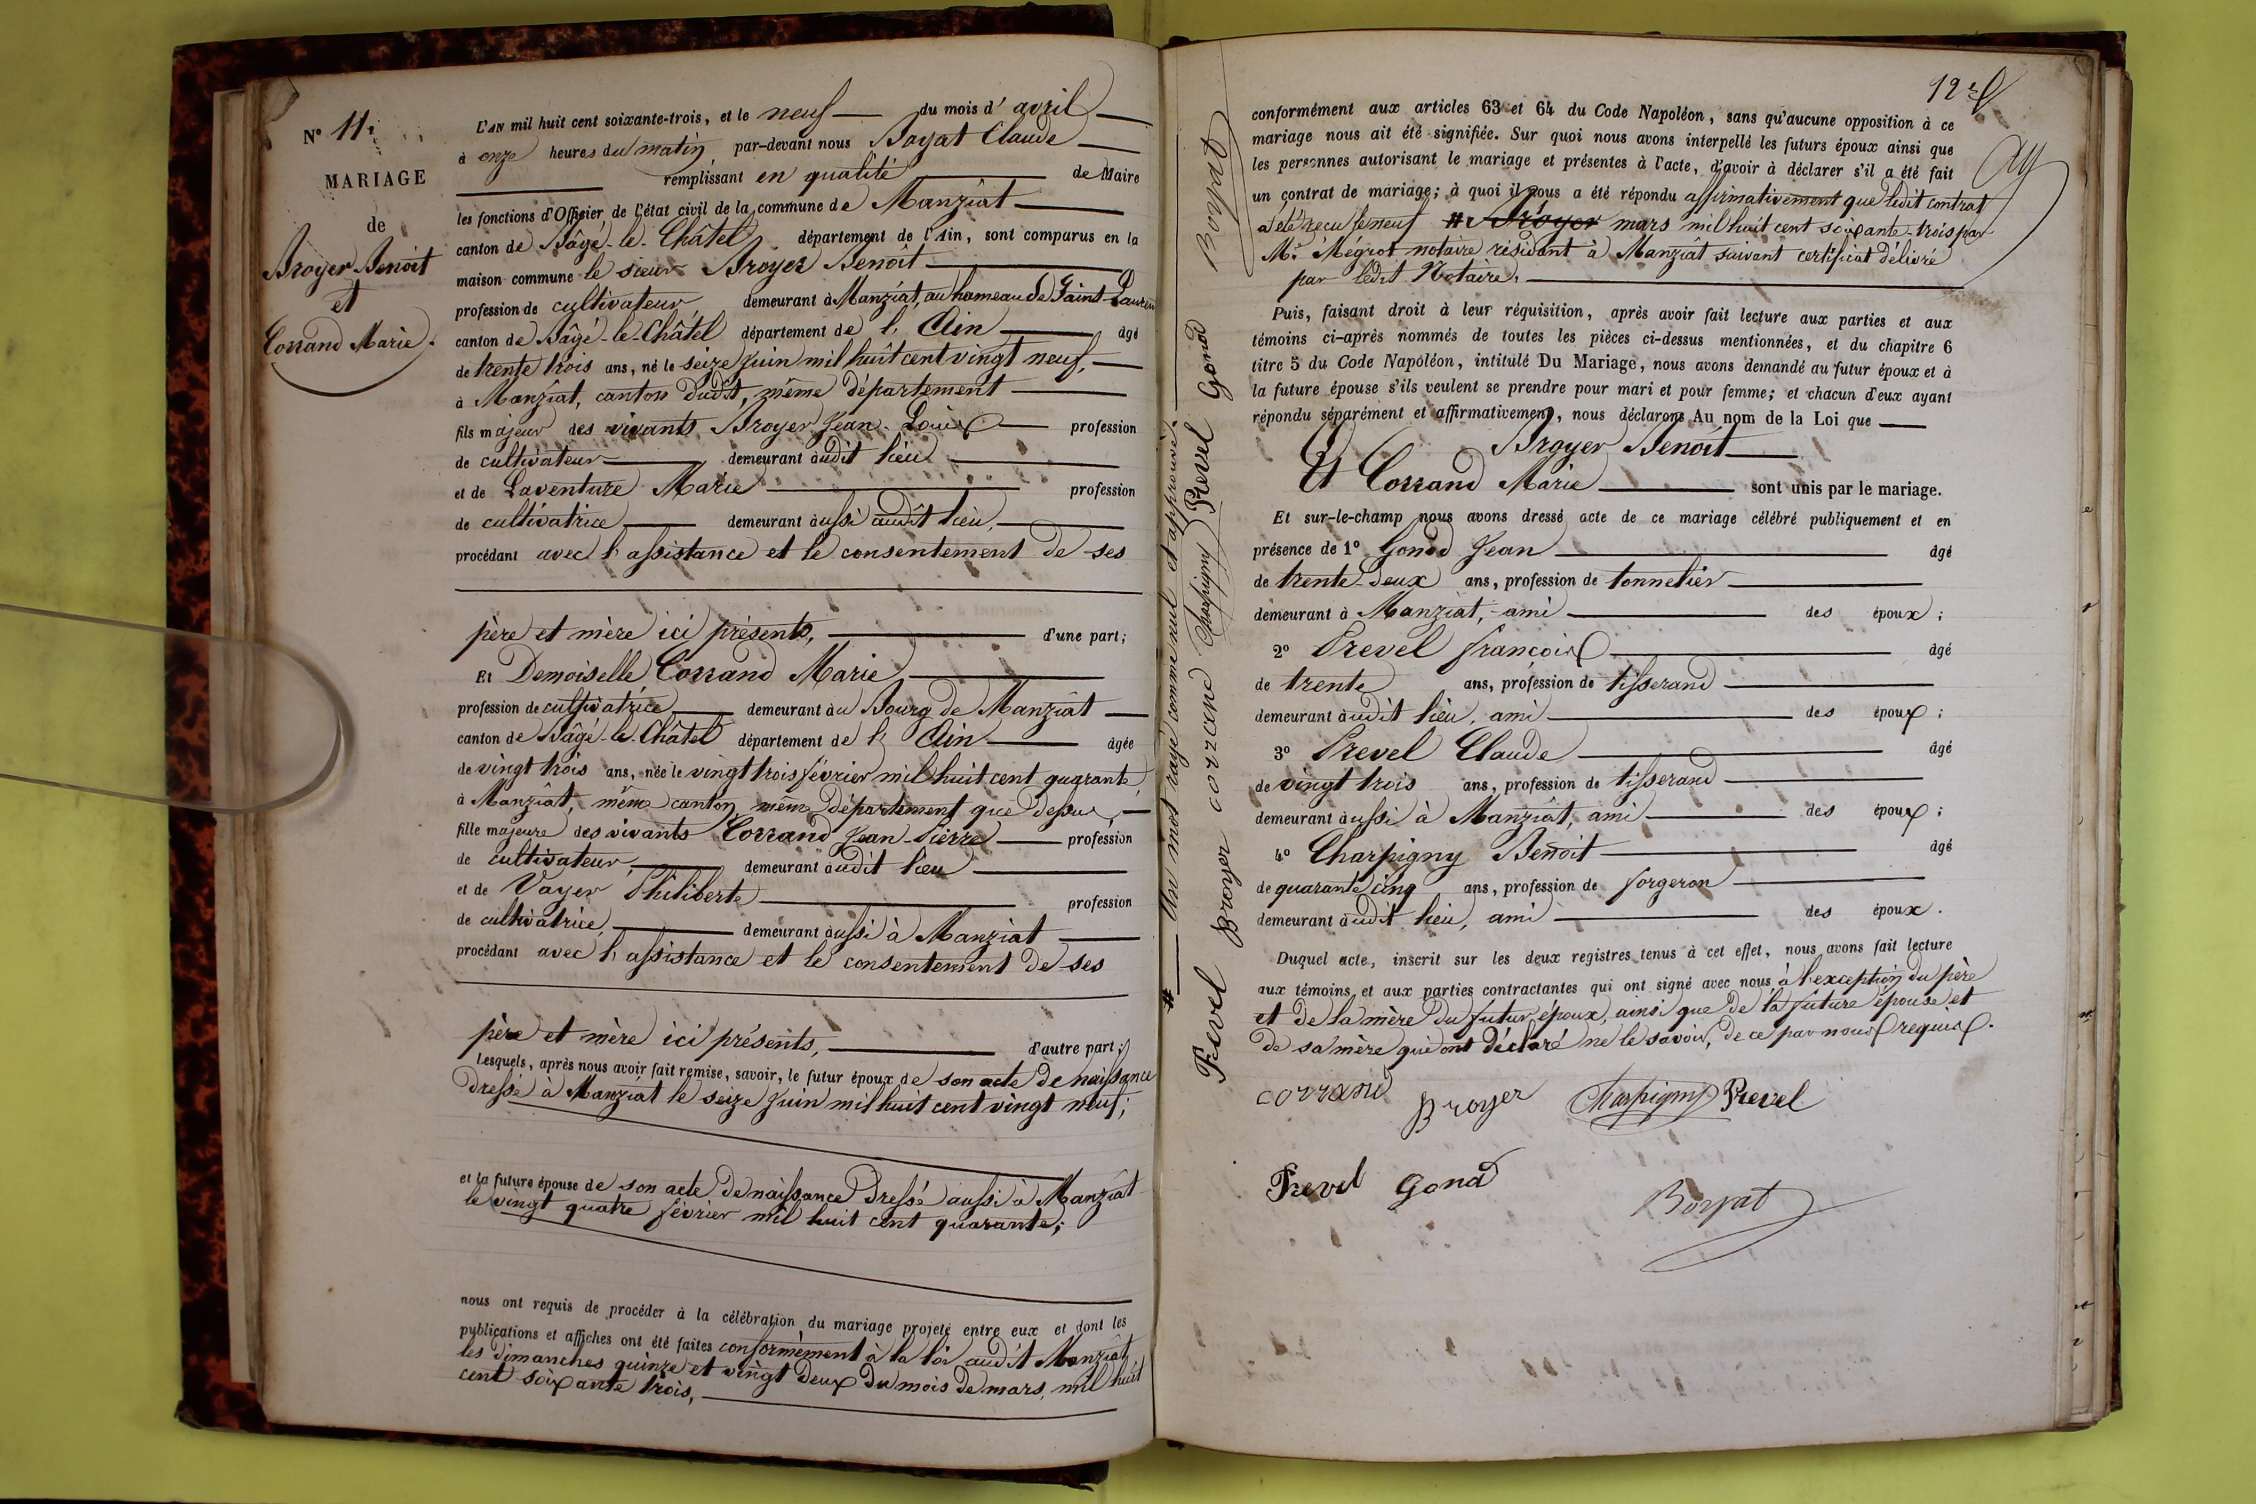 N° 11.
MARIAGE
de
Broyer Benoît
et
Corrand Marie.
L'AN mil huit cent soixante-trois, et le neuf du mois d'avril
à onze heures du matin par-devant nous Boyat Claude
remplissant en qualité de Maire
les fonctions d'Officier de l'état civil de la commune de Manziat
canton de Bâgé-le-Châtel département de l'Ain, sont comparus en la
maison commune le sieur Broyer Benoît
profession de cultivateur demeurant à Manziat, au hameau de Saint-Laurent
canton de Bâgé-le-Châtel département de l'Ain âgé
de trente trois ans, né le seize Juin mil huit cent vingt neuf,
à Manziat, canton dudit, même département
fils majeur des vivants Broyer Jean-Louis profession
de cultivateur demeurant audit lieu
et de Laventure Marie profession
de cultivatrice demeurant aussi audit lieu,
procédant avec l'assistance et le consentement de ses
père et mère ici présents, d'une part;
Et Demoiselle Corrand Marie
profession de cultivatrice demeurant au Bourg de Manziat
canton de Bâgé-le-Châtel département de l'Ain âgée
de vingt trois ans, née le vingt trois février mil huit cent quarante,
à Manziat, même canton, même département que dessus,
fille majeure des vivants Corrand Jean-Pierre profession
de cultivateur, demeurant audit lieu
et de Vayer Philiberte profession
de cultivatrice, demeurant aussi à Manziat
procédant avec l'assistance et le consentement de ses
père et mère ici présents, d'autre part;
Lesquels, après nous avoir fait remise, savoir, le futur époux de son acte de naissance
dressé à Manziat le seize Juin mil huit cent vingt neuf;
et la future épouse de son acte de naissance dressé aussi à Manziat
le vingt quatre février mil huit cent quarante;
nous ont requis de procéder à la célébration du mariage projeté entre eux et dont les
publications et affiches ont été faites conformément à la loi audit Manziat
les dimanches quinze et vingt deux du mois de mars, mil huit
cent soixante trois,
# Un mot rayé comme nul et approuvé.
Prevel Broyer corrand Charpigny Prevel Gonod
Boyat
12e
conformément aux articles 63 et 64 du Code Napoléon, sans qu'aucune opposition à ce
mariage nous ait été signifiée. Sur quoi nous avons interpellé les futurs époux ainsi que
les personnes autorisant le mariage et présentes à l'acte, d'avoir à déclarer s'il a été fait
un contrat de mariage; à quoi il nous a été répondu affirmativement que ledit contrat
a été reçu le neuf # Broyer mars mil huit cent soixante-trois par
Me Mégrot notaire résidant à Manziat suivant certificat délivré
par ledit Notaire.
Puis, faisant droit à leur réquisition, après avoir fait lecture aux parties et aux
témoins ci-après nommés de toutes les pièces ci-dessus mentionnées, et du chapitre 6
titre 5 du Code Napoléon, intitulé Du Mariage, nous avons demandé au futur époux et à
la future épouse s'ils veulent se prendre pour mari et pour femme; et chacun d'eux ayant
répondu séparément et affirmativement, nous déclarons Au nom de la Loi que
Broyer Benoît
Et Corrand Marie sont unis par le mariage.
Et sur-le-champ nous avons dressé acte de ce mariage célébré publiquement et en
présence de 1° Gonod Jean âgé
de trente-deux ans, profession de tonnelier
demeurant à Manziat, ami des époux;
2° Prevel françois âgé
de trente ans, profession de tisserand
demeurant audit lieu, ami des époux;
3° Prevel Claude âgé
de vingt trois ans, profession de tisserand
demeurant aussi à Manziat, ami des époux;
4° Charpigny Benoît âgé
de quarante cinq ans, profession de forgeron
demeurant audit lieu, ami des époux.
Duquel acte, inscrit sur les deux registres tenus à cet effet, nous avons fait lecture
aux témoins et aux parties contractantes qui ont signé avec nous, à l'exception du père
et de la mère du futur époux, ainsi que de la future épouse et
de sa mère qui ont déclaré ne le savoir, de ce par nous requis.
corrand Broyer Charpigny Prevel
Prevel Gonod
Boyat